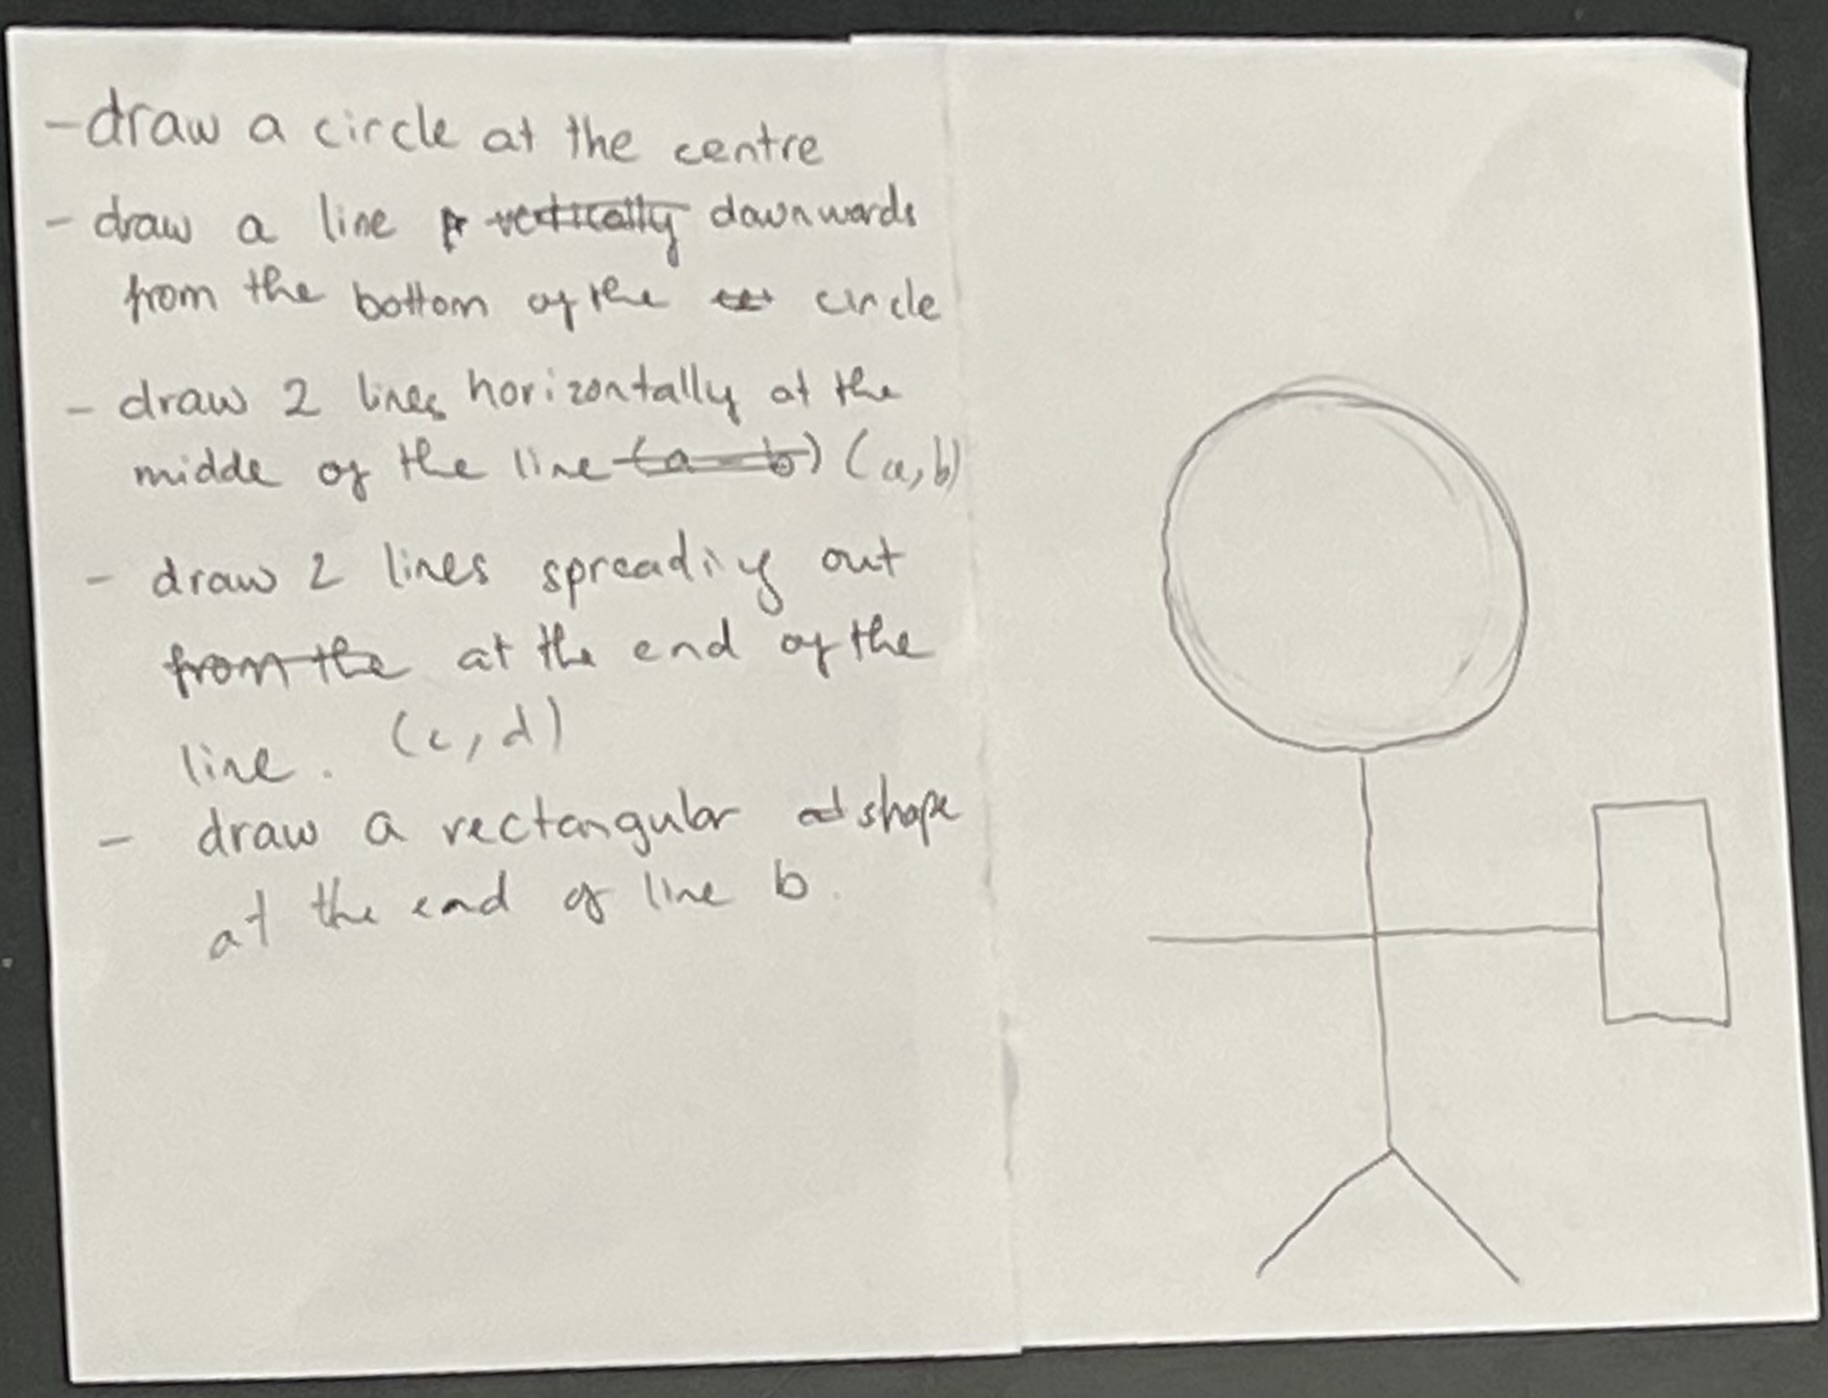 - draw a circle at the centre
- draw a line vertically downwards
from the bottom of the circle
- draw 2 lines horizontally at the
midde of the line (a - b) (a,b)
- draw 2 lines spreading out
from the at the end of the
line. (c,d)
- draw a rectangular shape
at the end of line b.